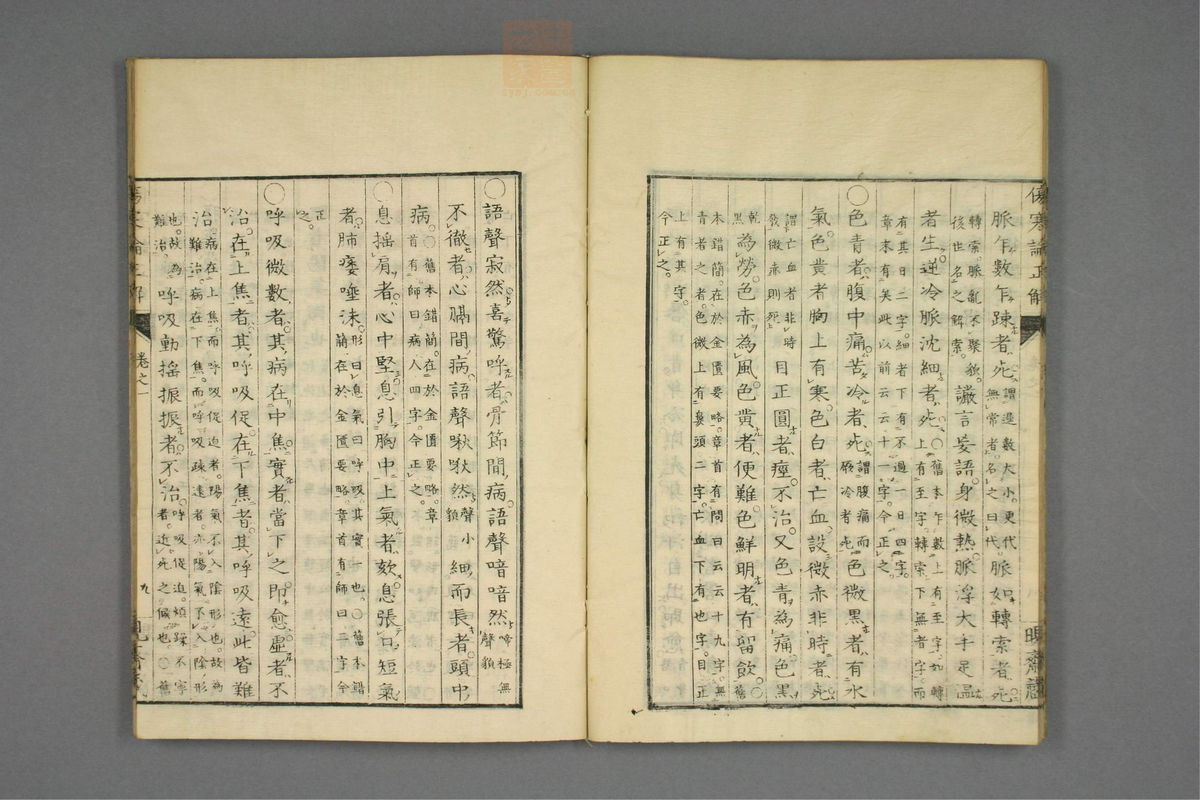 脈乍數乍踈者死謂遲數大小更代無常者名之曰代脈如轉索者死
轉索脈亂不聚貌後世名之解索譫言妄語身微熱脈浮大手足温
者生逆冷脈沈細者死○舊本乍數上有至字如轉上有至字轉索下無者字而
有其日二字細者下有不過一日四字章末有矣此以前云云十一字今正之
○色青者腹中痛苦冷者死謂腹痛而厥冷者死色微黑者有水
氣色黄者胸上有寒色白者亡血設微赤非時者死
謂亡血者非時發微赤則死目正圓者痙不治又色青為痛色黑
為勞色赤為風色黄者便難色鮮明者有留飲舊
本錯簡在於金匱要略章首有問曰云云十九字無青者之者色微上有鼻頭二字亡血下有也字目正
上有其字今正之
○語聲寂然喜驚呼者骨節間病語聲喑喑然啼極無聲貌
不徹者心膈間病語聲啾啾然聲小貌細而長者頭中
病○舊本錯簡在於金匱要略章首有師曰病人四字今正之
○息搖肩者心中堅息引胸中上氣者欬息張口短氣
者肺痿唾沫形曰息氣曰呼吸其實一也○舊本錯簡在於金匱要略章首有師曰二字今
正之
○呼吸微數者其病在中焦實者當下之即愈虛者不
治在上焦者其呼吸促在下焦者其呼吸遠此皆難
治病在上焦而呼吸促迫者陽氣不入陰形也故為難治病在下焦而呼吸踈遠者亦陽氣不入陰形
也故為難治呼吸動搖振振者不治呼吸促迫煩躁不寧者近死之候也○舊
傷寒論正解
卷之一
九